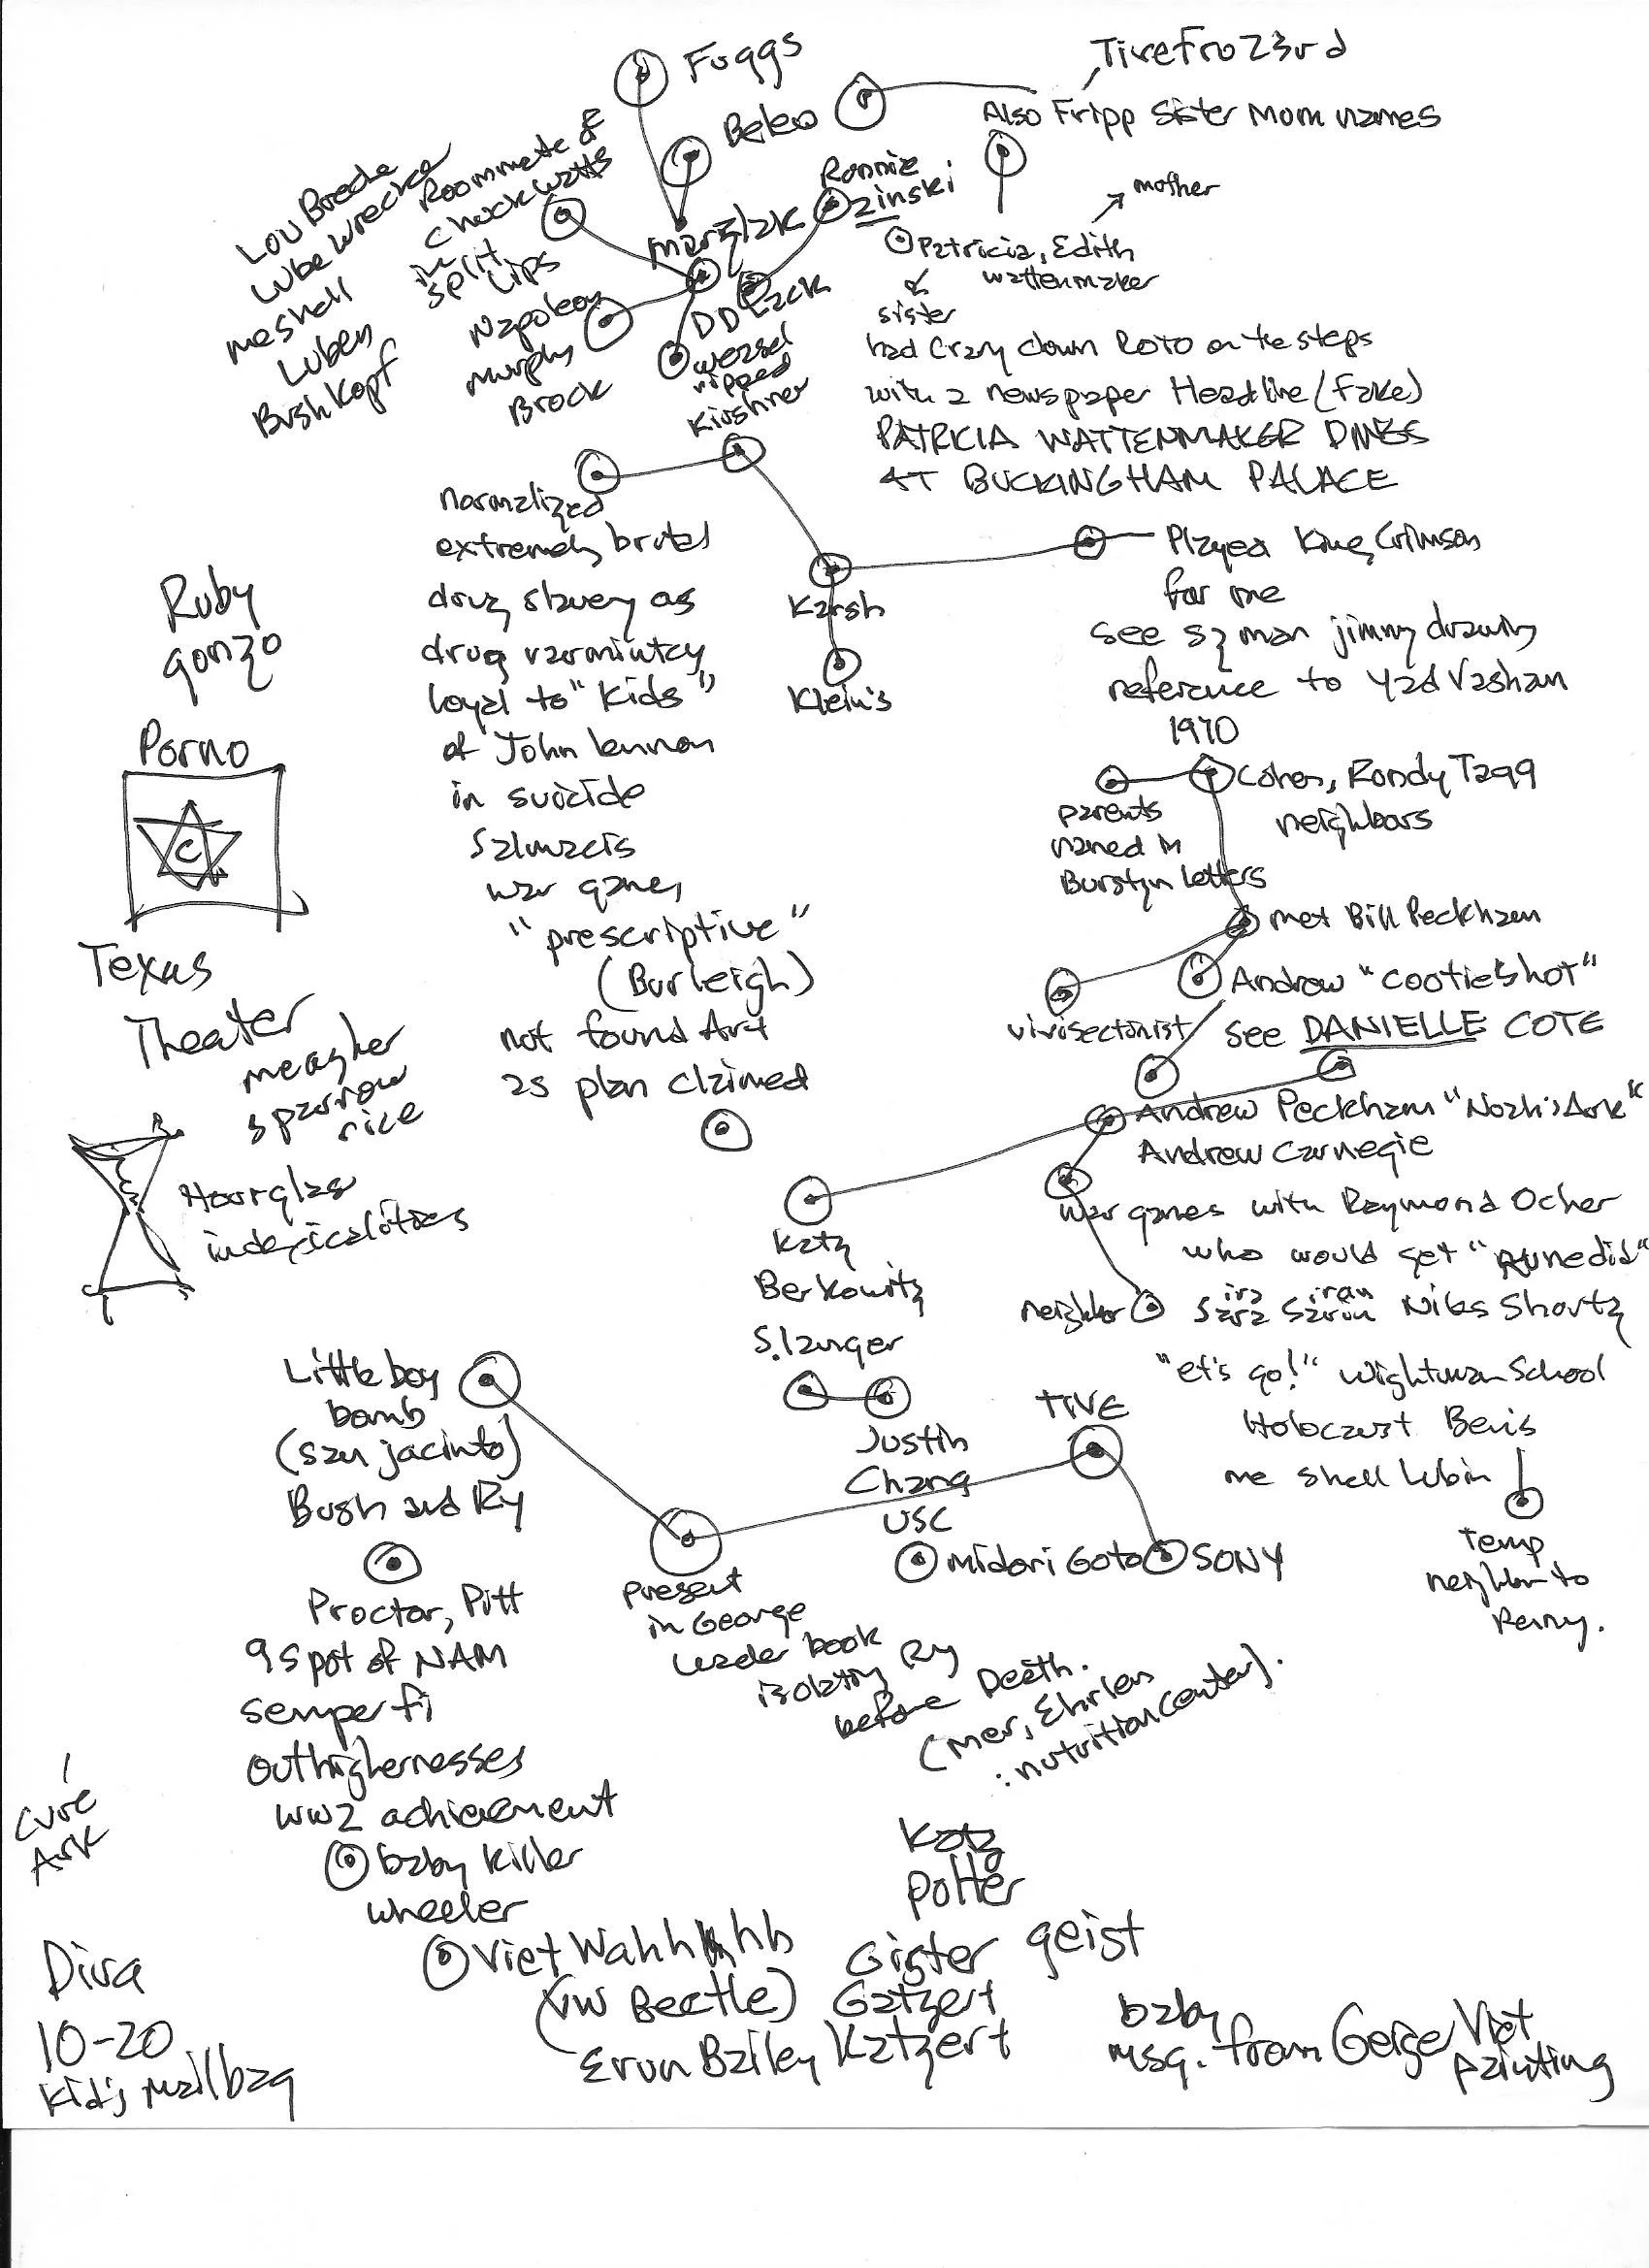 Fuggs
Beleo
TiveFro23rd
Also Fripp Sister Mom names
mother
Ronnie
Zinski
Patricia, Edith
wattenmaker
sister
had Crazy clown Roto on the steps
with a newspaper Headline (Fake)
PATRICIA WATTENMAKER DINES
AT BUCKINGHAM PALACE
Lou Brocke
Lube wrecker
meshell
Luben
Bush Kopf
Roommate of
Chuck Watts
in
Split
Lips
Napoleon
Murphy
Brock
DD Zack
weasel
ripped
Kirshner
normalized
extremely brutal
drug slavery as
drug
loyal to "kids"
of John Lennon
in suicide
Salmacis
war games
"prescriptive"
(Burleigh)
not found Art
as plan claimed
Karsh
Klein's
Played King Crimson
for me
see jimmy drawing
reference to Yad Vasham
1970
Cohen, Rondy Tagg
neighbors
parents
named in
Burstyn letters
met Bill Peckham
Andrew "cootie shot"
vivisectionist
see DANIELLE COTE
Andrew Peckham "Noah's Ark"
Andrew Carnegie
war games with Raymond Ocher
who would get
neighbor
Niles Shortz
"et's go!" Wightman School
Holocaust Bevis
me shell Lubin
Temp
neighbor to
Penny.
Ruby
gonzo
Porno
C
Texas
Theater
meagher
sparrow
rice
Hourglass
indexicalities
Katz
Berkowitz
S. langer
Justin
Chang
USC
Midori Goto
SONY
TIVE
Little boy
bomb
(San jacinto)
Bush and Ry
Proctor, Pitt
9 spot of NAM
semper fi
outhighernesses
WW2 achievement
baby killer
wheeler
Present
in George
Leader book
isolating Ry
before Death.
(Mer, Ehrlen
: nutrition center).
Cure
Ark
Diva
10-20
Kid's Mailbag
Viet Wahh hb
(VW Beetle)
Erun Bailey Katzert
Katz
Potter
Gister geist
Gatzert
baby
msg. from Geige Viet
painting